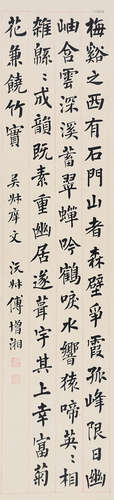 梅谿之西有石門山者森壁爭霞孤峰限日幽
岫含雲深溪蓄翠蟬吟鶴唳水響猿啼英英相
雜緜緜成韻既素重幽居遂葺宇其上幸富菊
花兼饒竹實
吳叔庠文 沅叔傅增湘